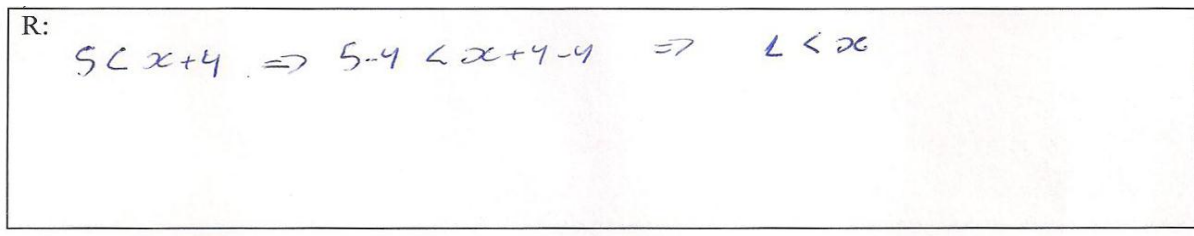 R:
5 < x+4 => 5-4 < x+4-4 => 1 < x